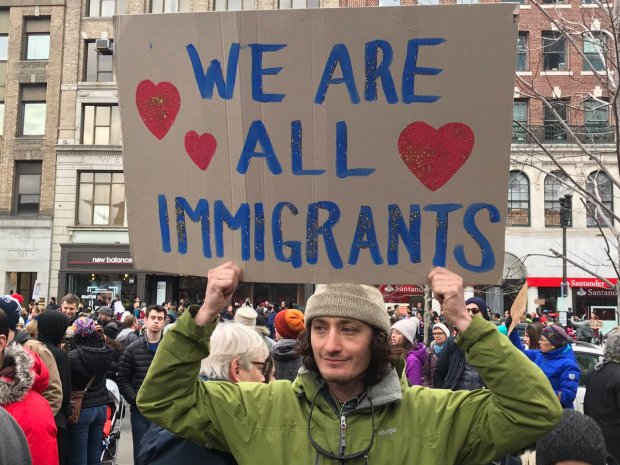 WE ARE
ALL
IMMIGRANTS
new balance
Santander
Santander
Santander
sherpa